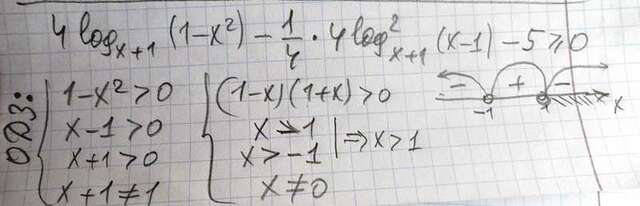 4 log_{x+1} (1-x²) - 1/4 · 4 log²_{x+1} (x-1) - 5 ≥ 0
ОДЗ:
1-x² > 0
x-1 > 0
x+1 > 0
x+1 ≠ 1
(1-x)(1+x) > 0
x > 1
x > -1
x ≠ 0
⇒ x > 1
- + -
-1 1 x